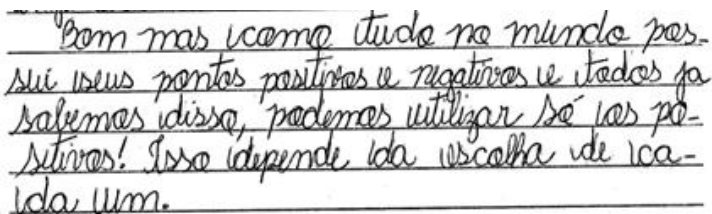 Bom mas como tudo no mundo pos-
sui seus pontos positivos e negativos e todos ja
sabemos disso, podemos utilizar só os po-
sitivos! Isso depende da escolha de ca-
da um.